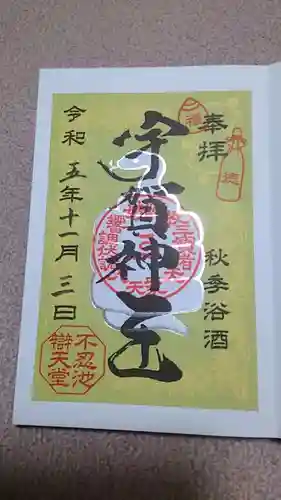 奉拝
秋季浴酒
宇賀神王
令和五年十一月三日
不忍池
辯天堂